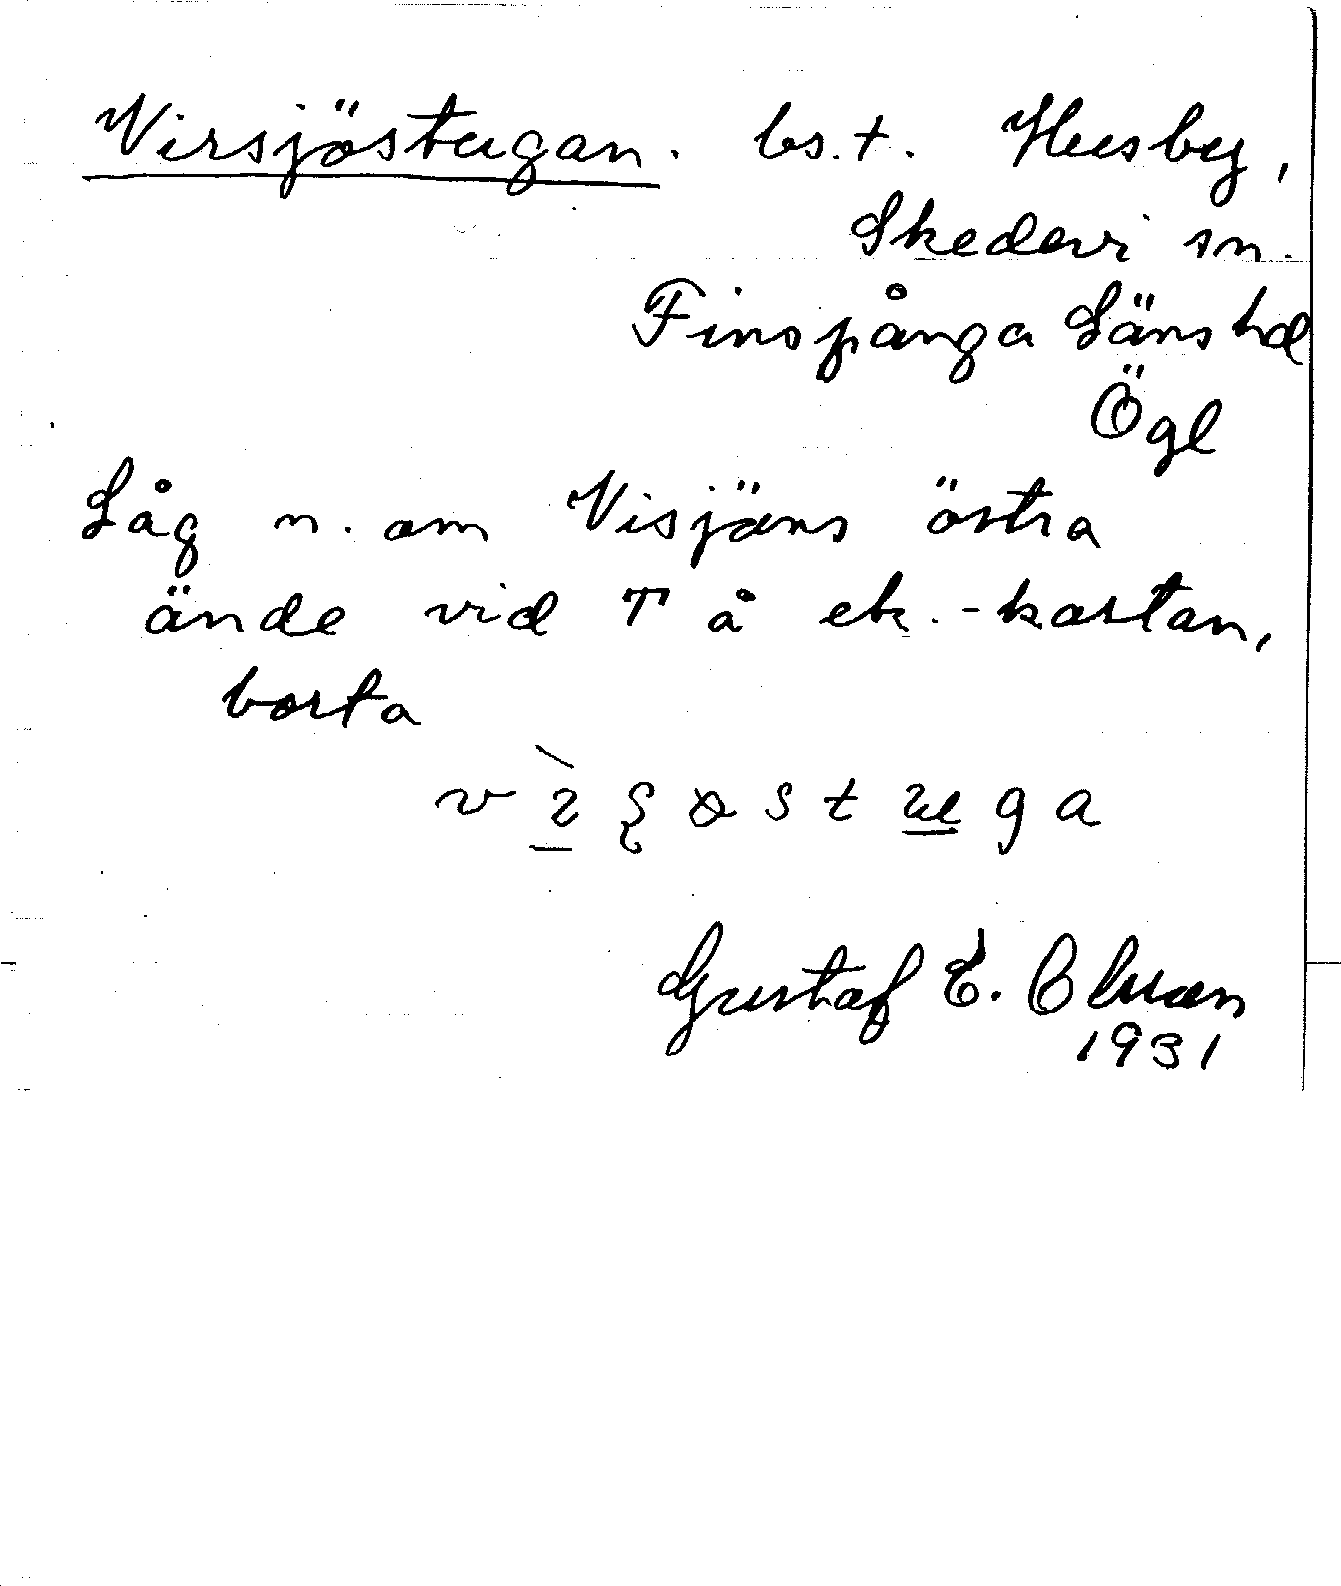 Virsjöstugan. bs.t. Husby,
Skedevi sn.
Finspånga Läns hd
Ögl
Låg n. om Visjöns östra
ände vid T å ek.-kartan,
borta
Gustaf E.
1931